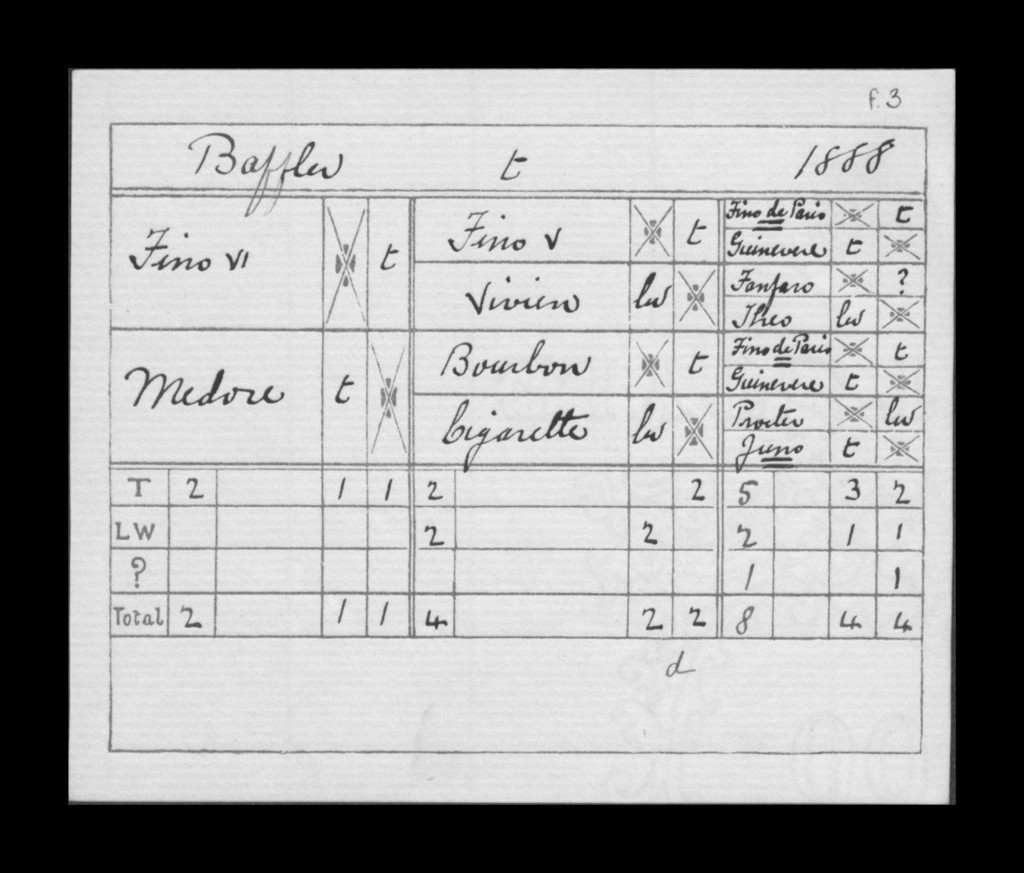 f. 3
Baffler t 1888
Fino VI t
Medore t
Fino V t
Vivien lw
Bourbon t
Cigarette lw
Fino de Paris t
Guinevere t
Fanfaro ?
Theo lw
Fino de Paris t
Guinevere t
Procter lw
Juno t
T 2 1 1 2 2 5 3 2
LW 2 2 2 1 1
? 1 1
Total 2 1 1 4 2 2 8 4 4
d